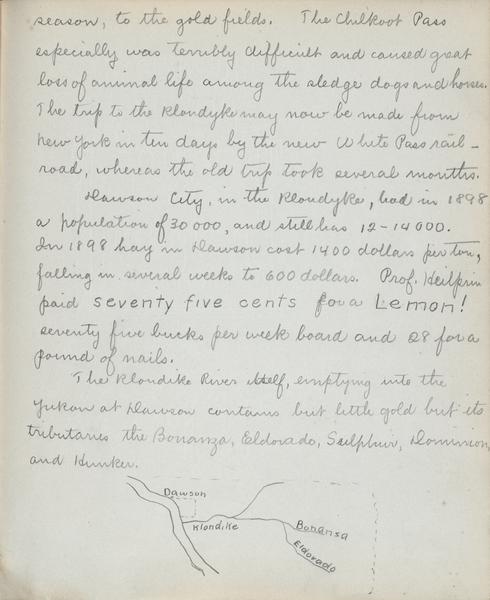 season, to the gold fields. The Chilkoot Pass
especially was terribly difficult and caused great
loss of animal life among the sledge dogs and horses.
The trip to the Klondyke may now be made from
New York in ten days by the new White Pass rail-
road, whereas the old trip took several months.
Dawson City, in the Klondyke, had in 1898
a population of 30 000, and still has 12-14 000.
In 1898 hay in Dawson cost 1400 dollars per ton,
falling in several weeks to 600 dollars. Prof. Heilprin
paid seventy five cents for a Lemon!
seventy five bucks per week board and 28 for a
pound of nails.
The Klondike River itself, emptying into the
Yukon at Dawson contains but little gold but its
tributaries the Bonanza, Eldorado, Sulphur, Dominion,
and Hunker.
Dawson
Klondike
Bonansa
Eldorado